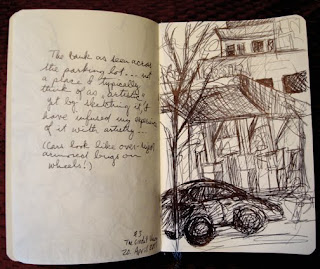 The bank as seen across
the parking lot... not
a place I typically
think of as "artistic"
yet by sketching it, I
have infused my experience
of it with artistry...
(Cars look like over-sized
armored bugs on
wheels!)
#3
The Credit Union
22 April